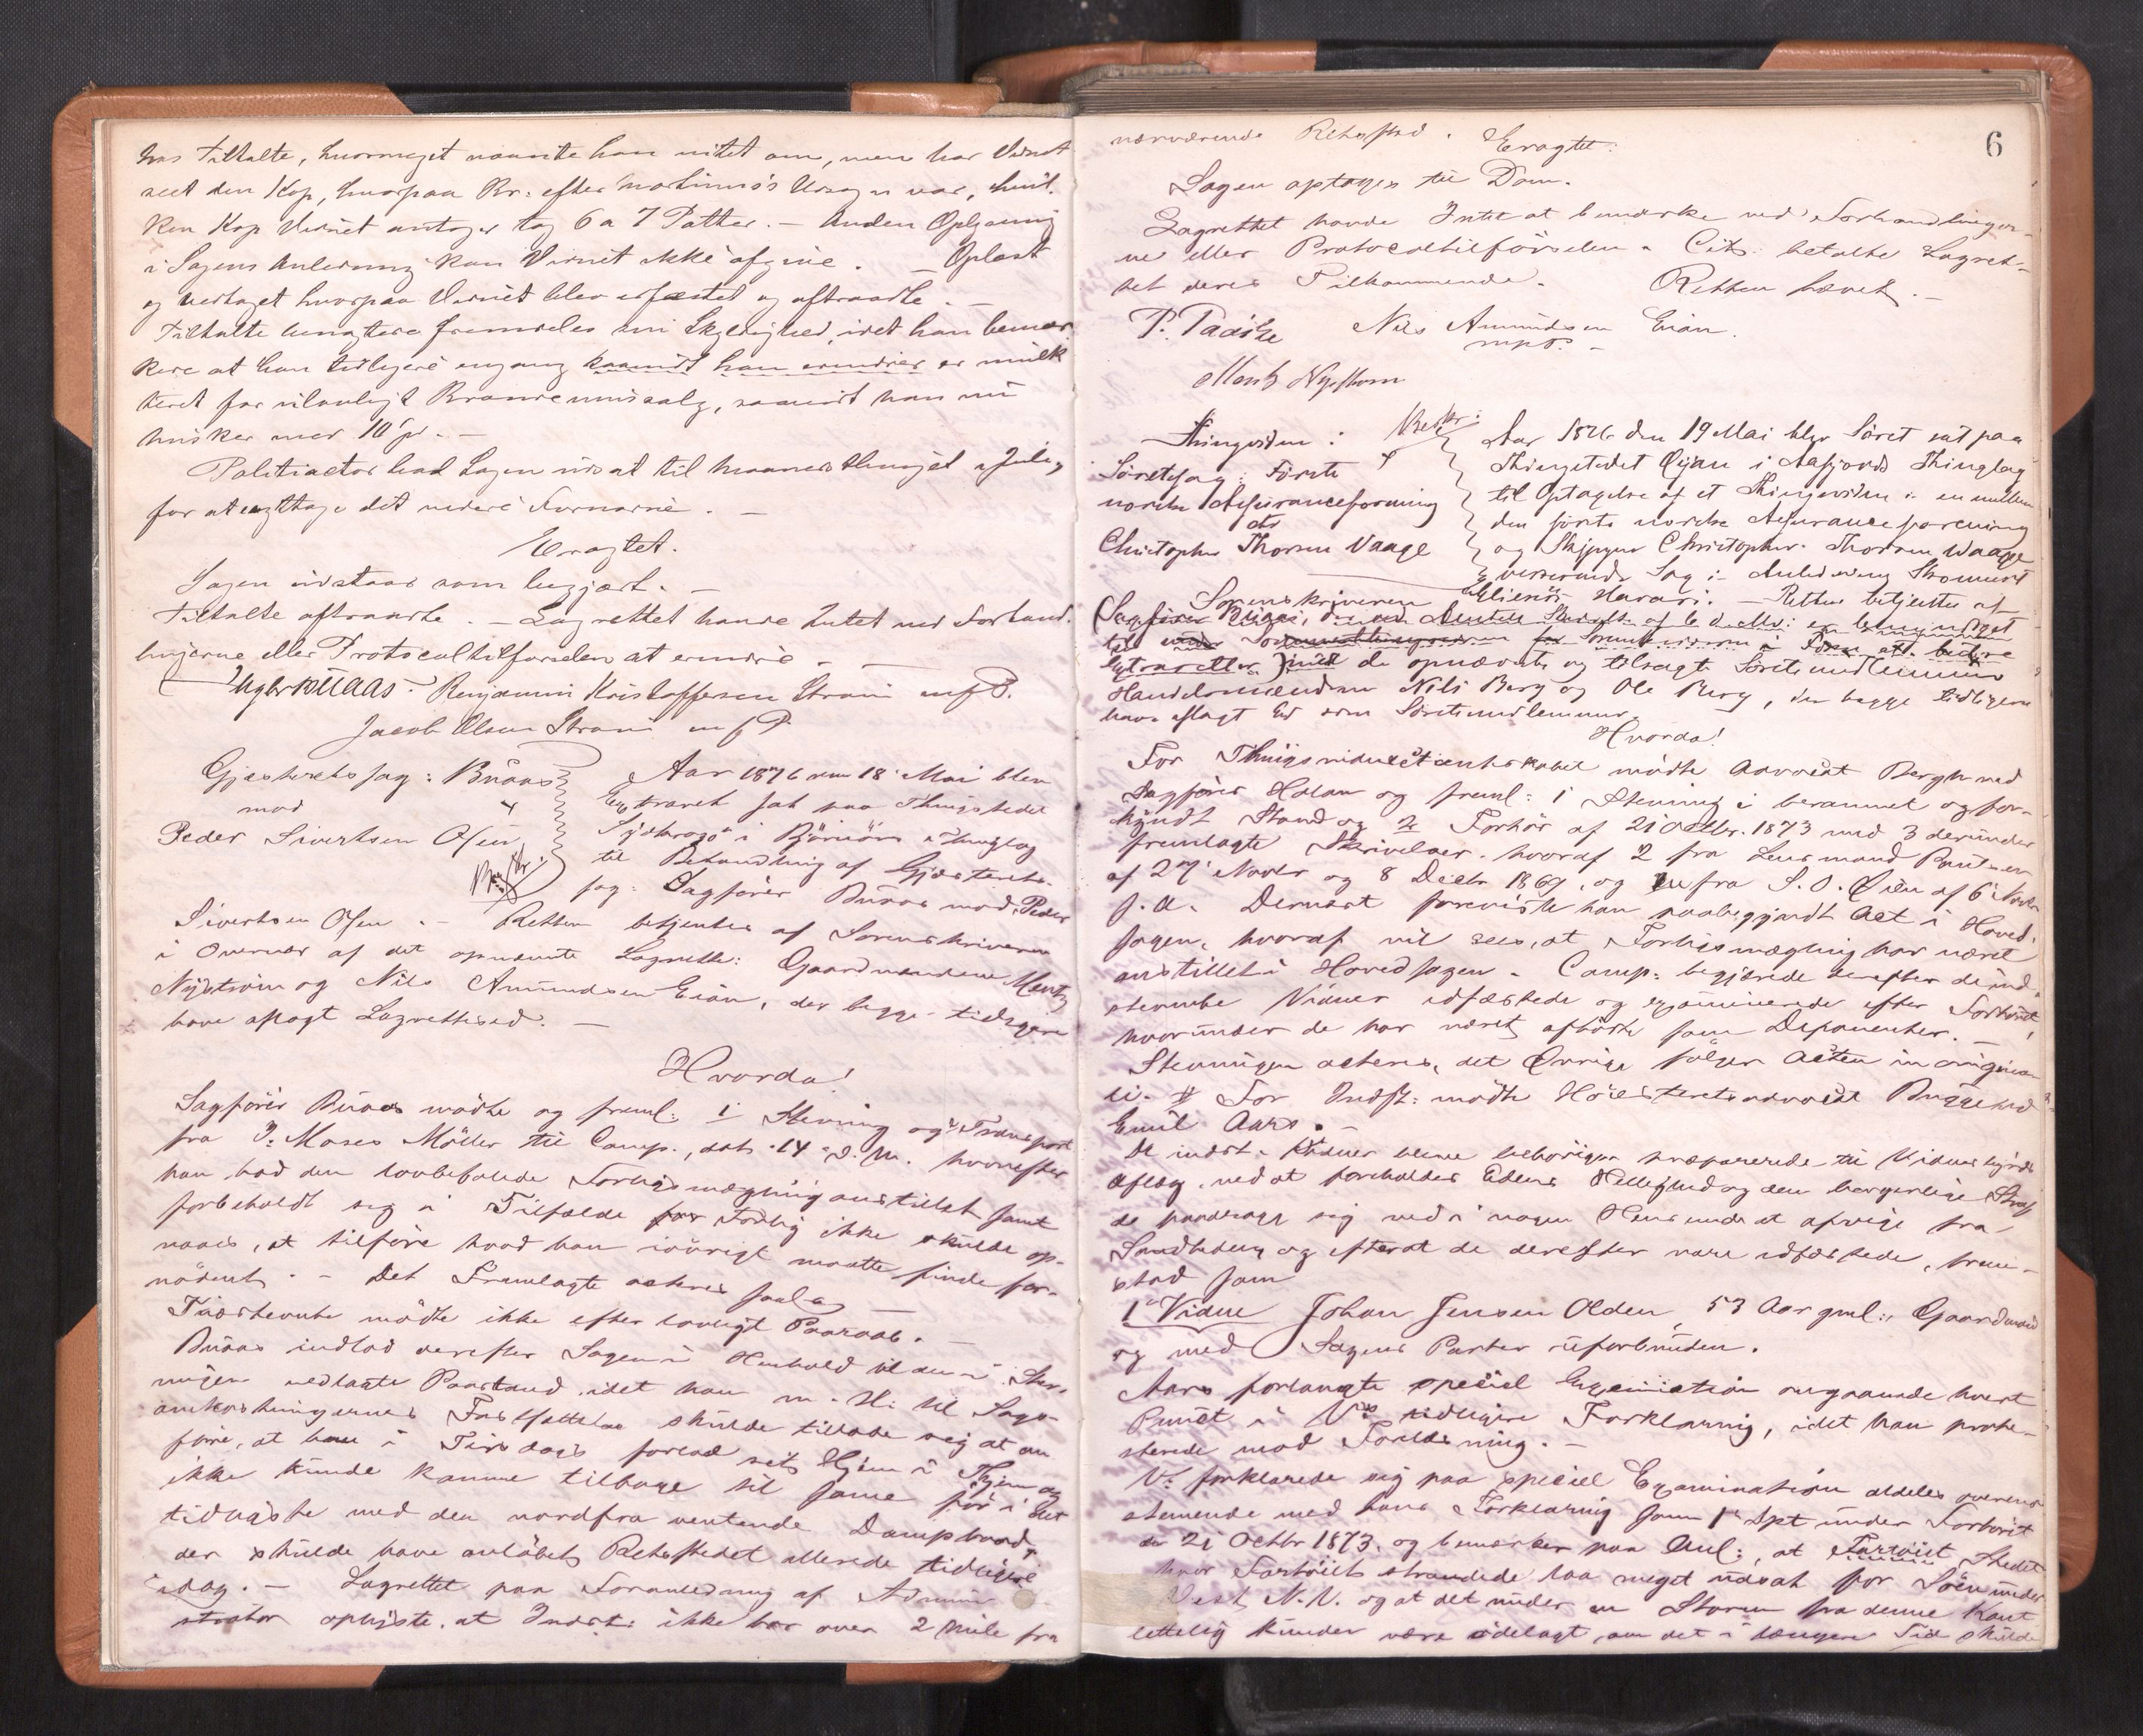 hos Tiltalte, hvormeget navnte han vidst om, men har Vidnet
seet den Kop, hvorpaa Br: efter Martinus's Udsagn var, hvil-
ken Kop Vidnet antager tog 6 a 7 Potter. — Anden Oplysning
i Sagens Anledning kan Vidnet ikke afgive. — Oplæst
og vedtaget hvorpaa Vidnet blev edfæstet og aftraadte. —
Tiltalte benægtede fremdeles sin Skyldighed, idet han bemær-
kede at han tidligere engang saavidt han erindrer er mulk-
teret for ulovligt Brændeviinssalg, saavidt han nu
husker med 10 Spd. —
Politiactor bad Sagen udsat til Maanedsthinget i Juli,
for at iagttage det videre Fornødne. —
Eragtet.
Sagen udstaar som begjært. —
Tiltalte aftraadte. — Lagrettet havde Intet ved Forhand-
lingerne eller Protocoltilførselen at erindre. —
Benjamin Kristoffersen Strøm m/P.
Jacob Olsen Strøm m/P
Gjesteretssag: Buaas
mod
Peder Sivertsen Ofsen
Aar 1876 den 18 Mai blev
Extraret sat paa Thingstedet
Sydkrogø i Bjørnørs Thinglag
til Behandling af Gjesterets-
sag: Sagfører Buaas mod Peder
Sivertsen Ofsen. — Retten betjentes af Sorenskriveren
i Overvær af det opnævnte Lagrette: Gaardmændene Mentz
Nyström og Nils Amundsen Eian, der begge tidligere
have aflagt Lagrettesed. —
Hvorda!
Sagfører Buaas mødte og freml: 1 Stevning og Transport
fra J. Moses Møller til Comp., dat. 14 d. M. hvorefter
han bad den lovbefalede Forligsmægling anstillet samt
forbeholdt sig i Tilfælde for Forlig ikke skulde op-
naaes, at tilføre hvad han iøvrigt maatte finde for-
nødent. — Det Fremlagte acteres saal:
Indstevnte mødte ikke efter lovligt Paaraab. —
Buaas indlod derefter Sagen i Henhold til den i Stev-
ningen nedlagte Paastand, idet han m. H. til Sags-
omkostningernes Fastsættelse skulde tillade sig at an-
føre, at han i Tirsdags forlod sit Hjem i Thjem og
ikke kunde komme tilbage til same før i det
tidligste med den nordfra ventende Dampbaad,
der skulde have anløbet Retsstedet allerede tidligere
idag. — Lagrettet paa Foranledning af Admini-
strator oplyste, at Indst: ikke bor over 2 Mile fra
6
nærværende Retssted. Eragtet:
Sagen optages til Dom.
Lagrettet havde Intet at bemærke ved Forhandlinger-
ne eller Protocoltilførselen. Cit: betalte Lagret-
tet deres Tilkommende. Retten hævet. —
P. Paaske Nils Amundsen Eian
m.p.P. —
Mentz Nystrøm
Thingvidne:
Søretssag: Første
norske Assuranceforening
ctr
Christopher Thorsen Vaage
Aar 1876 den 19 Mai blev Søret sat paa
Thingstedet Øijan i Aafjords Thinglag
til Optagelse af et Thingsvidne i en mellem
den første norske Assuranceforening
og Skipper Christopher Thorsen Waage
verserende Sag i Anledning Skonnert
Elienør Havari. — Retten betjentes af
Sorenskriveren
(Sagfører
Extraretter) med de opnævnte og tilsagte Søretsmedlemmer
Handelsmændene Nils Berg og Ole Berg, der begge tidligere
have aflagt Ed som Søretsmedlemmer.
Hvorda!
For Thingsvidnecitantskabet mødte Advocat Bergh ved
Sagfører Holan og freml: 1 Stevning i berammet og for-
kyndt Stand og 2 Forhør af 21 Octbr. 1873 med 3 derunder
fremlagte Skrivelser, hvoraf 2 fra Lensmand
af 27 Novbr og 8 Decbr 1869, og en fra S. O. Øien af 6 Novbr
s. A. Dernæst foreviste han paabegyndt Act i Hoved-
sagen, hvoraf vil sees, at Forligsmægling har været
anstillet i Hovedsagen. Comp: begjærede derefter de ind-
stevnte Vidner edfæstede og examinerede efter Forhøret,
hvorunder de har været afhørte som Deponenter. —
Stevningen acteres, det Øvrige følger Acten in origina-
li. # For Indst: mødte Høiesteretsadvocat Bugge ved
Emil Aars. —
De indst. Vidner bleve behørigen præparerede til Vidnesbyrds
Aflæg. ved at foreholdes Edens Hellighed og den borgerlige Straf
de paadrage sig ved i nogen Henseende at afvige fra
Sandheden og efterat de derefter vare edfæstede, frem-
stod som
1ste Vidne Johan Jensen Olden, 53 Aar gml:, Gaardmand
og med Sagens Parter uforbunden.
Aars forlangte speciel Examination angaaende hvert
Punct i Vts tidligere Forklaring, idet han prote-
sterede mod Forelæsning. —
Vt. forklarede sig paa speciel Examination aldeles overens-
stemmende med hans Forklaring som 1ste Dpt under Forhøret
den 21 Octbr 1873, og bemærker paa Anl:, at Stedet
hvor Fartøiet strandede laa meget udsat for Søen under
Vest N. V. og at det under en Storm fra denne Kant
lettelig kunde være ødelagt, om det i længere Tid skulde